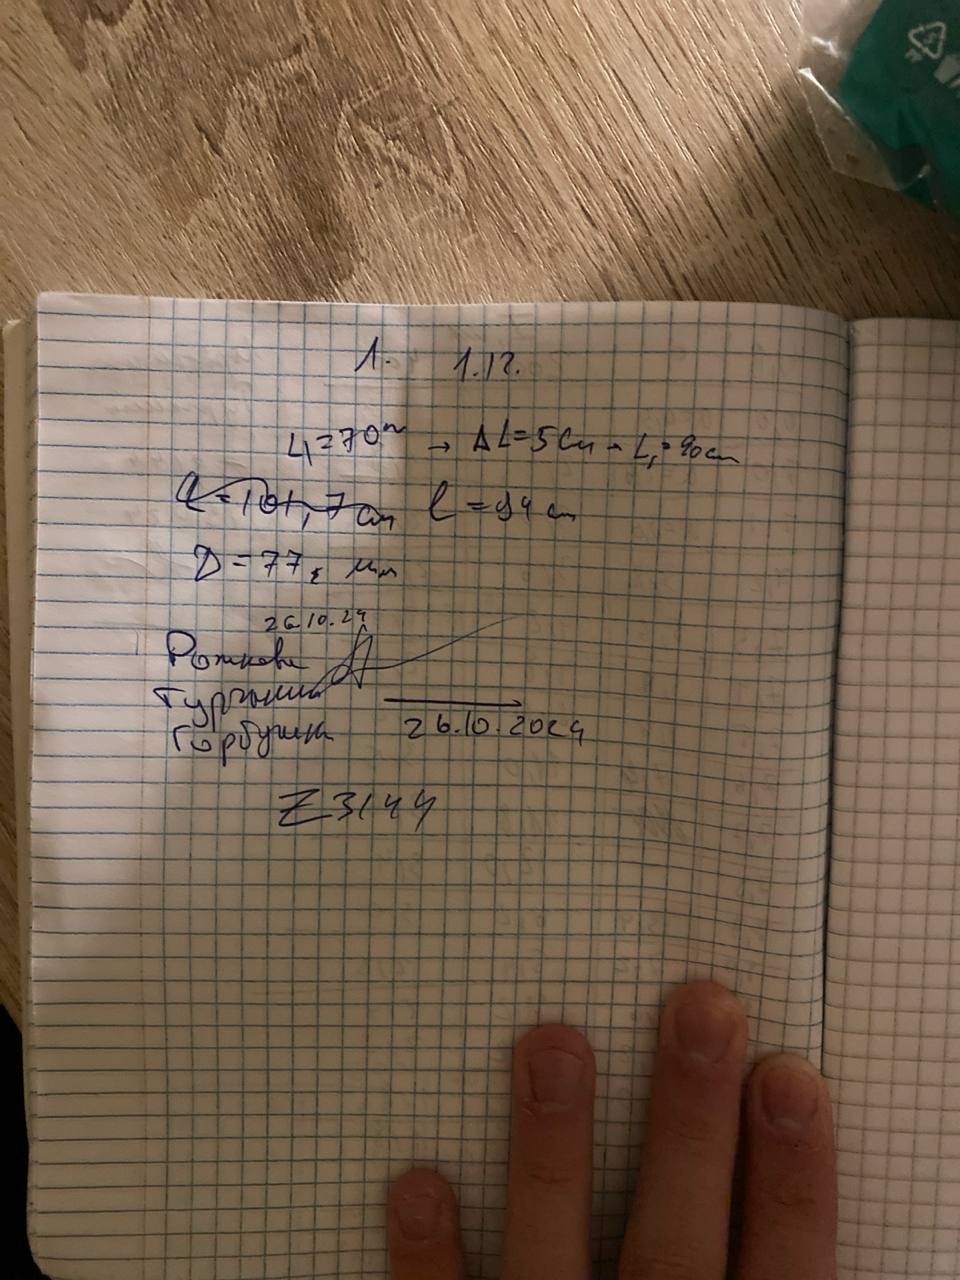 1. 1.12.
L₁=70см → ΔL=5см → L₁=90см
l=101,7 см l=94 см
D=77, мм
26.10.24
Рожкова
Горбунов
26.10.2024
Z3144